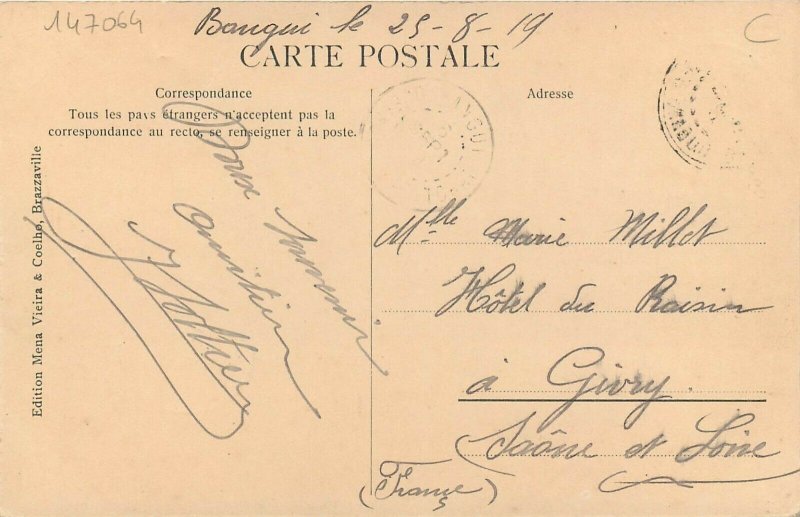 147064
Bangui le 25-8-19
C
CARTE POSTALE
Correspondance
Tous les pays étrangers n'acceptent pas la
correspondance au recto, se renseigner à la poste.
Adresse
Edition Mena Vieira & Coelho, Brazzaville
souvenir
Mlle Marie Millot
Hôtel du Raisin
à Givry
Saône et Loire
(France)